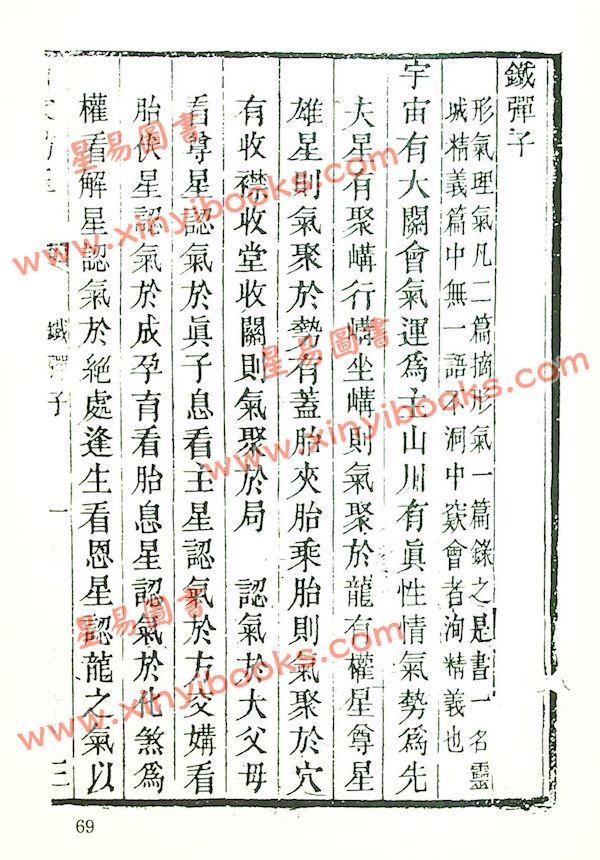 鐵彈子
形氣理氣凡二篇摘形氣一篇錄之是書一名靈
城精義篇中無一語不洞中竅會者洵精義也
宇宙有大關會氣運爲主山川有眞性情氣勢爲先
大星有聚媾行媾坐媾則氣聚於龍有權星尊星
雄星則氣聚於勢有蓋胎夾胎乘胎則氣聚於穴
有收襟收堂收關則氣聚於局 認氣於大父母
看尊星認氣於眞子息看主星認氣於方交媾看
胎伏星認氣於成孕育看胎息星認氣於化煞爲
權看解星認氣於絕處逢生看恩星認龍之氣以
鐵彈子
一
三
69
星易圖書
www.xinyibooks.com
星易圖書
www.xinyibooks.com
星易圖書
www.xinyibooks.com